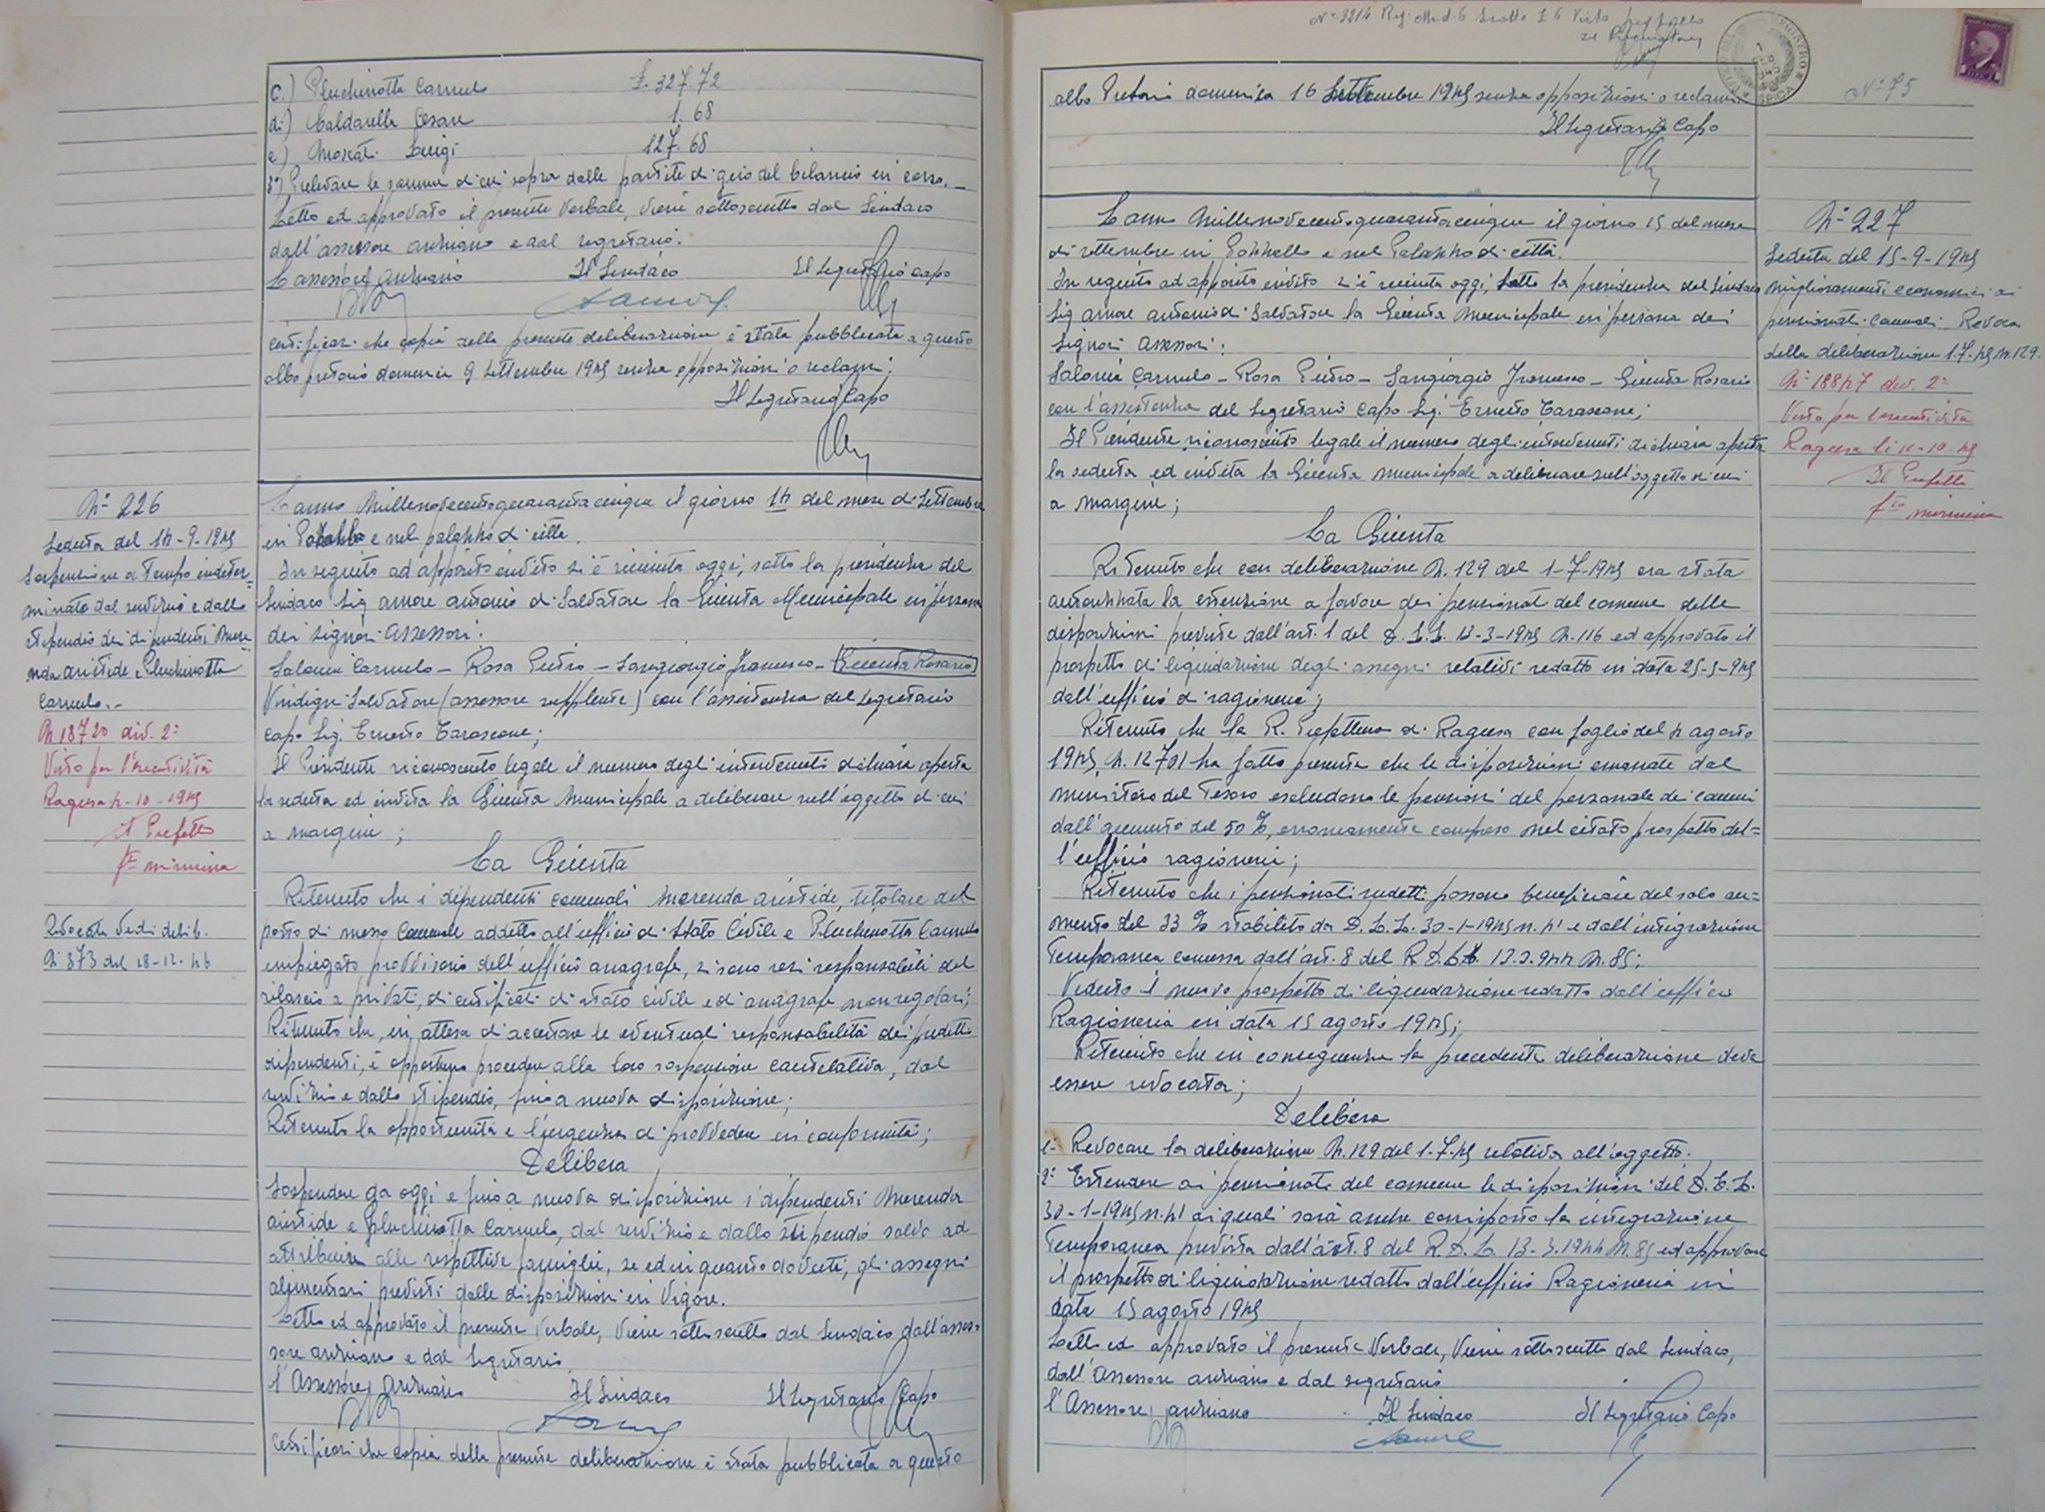 c.) Pluchinotta Carmelo £. 327.72
d.) Caldarella Cesare 1.68
e) Moscati Luigi 127.68
3°) Prelevare le somme di cui sopra dalle partite di giro del bilancio in corso. _
Letto ed approvato il presente verbale, viene sottoscritto dal Sindaco
dall'assessore anziano e dal segretario.
L'assessore anziano Il Sindaco Il Segretario Capo
Certificasi che copia della presente deliberazione è stata pubblicata a questo
albo pretorio domenica 9 settembre 1945 senza opposizioni o reclami;
Il Segretario Capo
N° 226
Seduta del 14-9-1945
Sospensione a tempo indeter=
minato dal servizio e dallo
stipendio dei dipendenti Mere=
nda Aristide e Pluchinotta
Carmelo.-
N. 18720 div. 2ª
Visto per l'esecutività
Ragusa 4-10-1945
Il Prefetto
fto mirmina
Revocata vedi delib.
N. 373 del 18-12-46
L'anno Millenovecentoquarantacinque il giorno 14 del mese di Settembre
in Pozzallo e nel palazzo di città.
In seguito ad apposito invito si è riunita oggi, sotto la presidenza del
Sindaco Sig. Amore Antonio di Salvatore la Giunta Municipale in persona
dei Signori Assessori:
Salonia Carmelo - Rosa Pietro - Sangiorgio Francesco - Giunta Rosario
Vindigni Salvatore (assessore supplente) con l'assistenza del Segretario
capo Sig. Ernesto Tarascone;
Il Presidente riconosciuto legale il numero degli intervenuti dichiara aperta
la seduta ed invita la Giunta Municipale a deliberare sull'oggetto di cui
a margine;
La Giunta
Ritenuto che i dipendenti comunali Merenda Aristide, titolare del
posto di messo Comunale addetto all'ufficio di Stato Civile e Pluchinotta Carmelo
impiegato provvisorio dell'ufficio anagrafe, si sono resi responsabili del
rilascio a privati, di certificati di stato civile e di anagrafe non regolari;
Ritenuto che, in attesa di accertare le eventuali responsabilità dei predetti
dipendenti, è opportuno procedere alla loro sospensione cautelativa, dal
servizio e dallo stipendio, fino a nuova disposizione;
Ritenuta la opportunità e l'urgenza di provvedere in conformità;
Delibera
Sospendere da oggi e fino a nuova disposizione i dipendenti Merenda
Aristide e Pluchinotta Carmelo, dal servizio e dallo stipendio salvo ad
attribuire alle rispettive famiglie, se ed in quanto dovuti, gli assegni
alimentari previsti dalle disposizioni in vigore.
Letto ed approvato il presente verbale, viene sottoscritto dal Sindaco dall'asses=
sore anziano e dal Segretario.
l'Assessore anziano Il Sindaco Il Segretario Capo
Certificasi che copia della presente deliberazione è stata pubblicata a questo
N° 3214 Reg. Mod. 6 Esatte £ 6 Visto Pozzallo
Il Procuratore
albo Pretorio domenica 16 Settembre 1945 senza opposizioni o reclami
Il Segretario Capo
N° 75
N° 227
Seduta del 15-9-1945
Miglioramenti economici ai
pensionati comunali - Revoca
della deliberazione 1-7-45 N. 129.
N° 18847 div. 2ª
Visto per l'esecutività
Ragusa li 11-10-45
Il Prefetto
fto mirmina
L'anno Millenovecentoquarantacinque il giorno 15 del mese
di settembre in Pozzallo e nel Palazzo di città.
In seguito ad apposito invito si è riunita oggi, sotto la presidenza del Sindaco
Sig. Amore Antonio di Salvatore la Giunta Municipale in persona dei
Signori Assessori:
Salonia Carmelo - Rosa Pietro - Sangiorgio Francesco - Giunta Rosario
con l'assistenza del Segretario Capo Sig. Ernesto Tarascone;
Il Presidente riconosciuto legale il numero degli intervenuti dichiara aperta
la seduta ed invita la Giunta Municipale a deliberare sull'oggetto di cui
a margine;
La Giunta
Ritenuto che con deliberazione N. 129 del 1-7-1945 era stata
autorizzata la estensione a favore dei pensionati del comune delle
disposizioni previste dall'art. 1 del D.L.L. 13-3-1945 N. 116 ed approvato il
prospetto di liquidazione degli assegni relativi redatto in data 25-5-945
dall'ufficio di ragioneria;
Ritenuto che la R. Prefettura di Ragusa con foglio del 4 agosto
1945, N. 12701 ha fatto presente che le disposizioni emanate dal
ministero del Tesoro escludono le pensioni del personale dei comuni
dall'aumento del 50%, erroneamente compreso nel citato prospetto del=
l'ufficio ragioneria;
Ritenuto che i pensionati suddetti possono beneficiare del solo au=
mento del 33% stabilito da D.L.L. 30-1-1945 n. 41 e dall'integrazione
Temporanea concessa dall'art. 8 del R.D.L. 13.3.944 N. 85;
Veduto il nuovo prospetto di liquidazione redatto dall'ufficio
Ragioneria in data 15 agosto 1945;
Ritenuto che in conseguenza la precedente deliberazione deve
essere revocata;
Delibera
1° Revocare la deliberazione N. 129 del 1-7-45 relativa all'oggetto.
2° Estendere ai pensionati del comune le disposizioni del D.L.L.
30-1-1945 n. 41 ai quali sarà anche corrisposta la integrazione
Temporanea prevista dall'art. 8 del R.D.L. 13-3-1944 N. 85 ed approvare
il prospetto di liquidazione redatto dall'ufficio Ragioneria in
data 15 agosto 1945
Letto ed approvato il presente Verbale, viene sottoscritto dal Sindaco,
dall'Assessore anziano e dal segretario
l'Assessore anziano Il Sindaco Il Segretario Capo